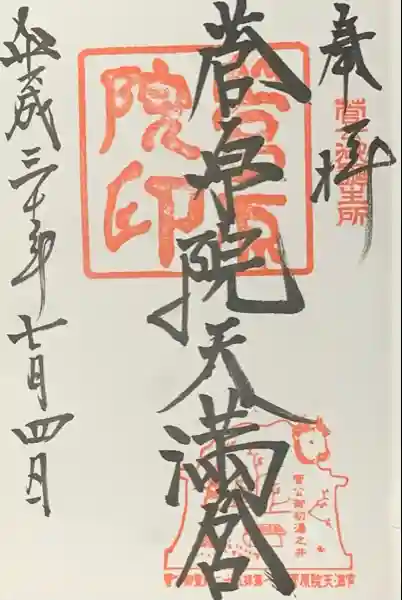 奉拝
菅公御誕生所
菅原院天満宮
菅原院印
菅公御初湯之井
平成三十年七月四日